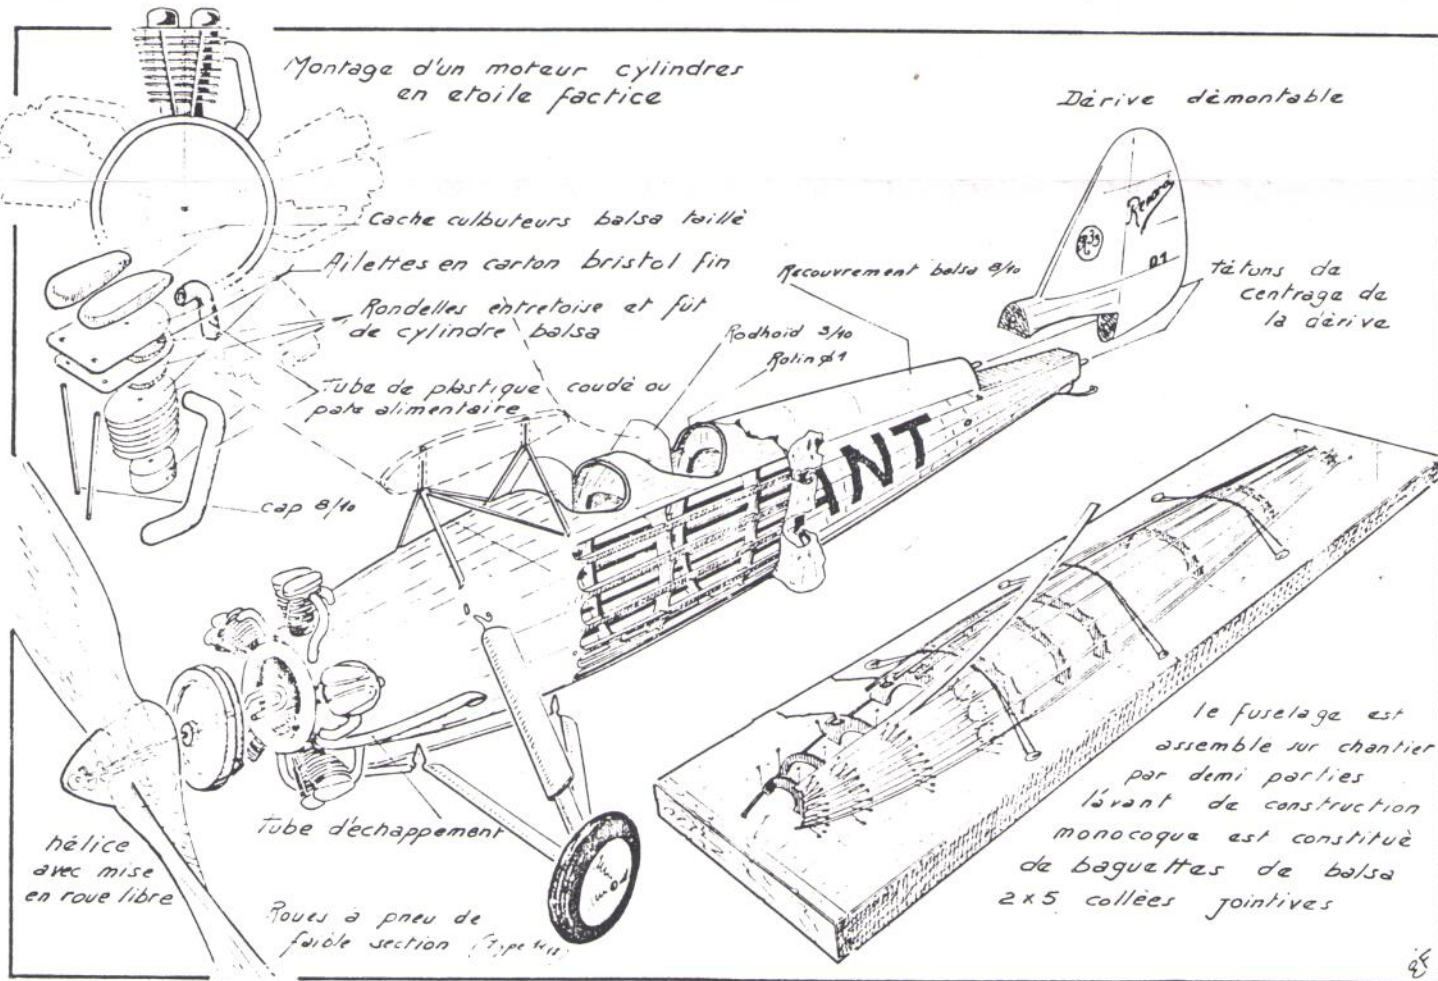 Montage d'un moteur cylindres
en etoile factice
Dérive démontable
Renard
01
Cache culbuteurs balsa taillé
Ailettes en carton bristol fin
Rondelles entretoise et fût
de cylindre balsa
Tube de plastique coudé ou
pate alimentaire
cap 8/10
Rodhoid 3/10
Rotin ø 1
Recouvrement balsa 8/10
Tétons de
centrage de
la dérive
ANT
hélice
avec mise
en roue libre
Tube d'échappement
Roues à pneu de
faible section
le fuselage est
assemble sur chantier
par demi parties
l'avant de construction
monocoque est constitué
de baguettes de balsa
2 x 5 collées jointives